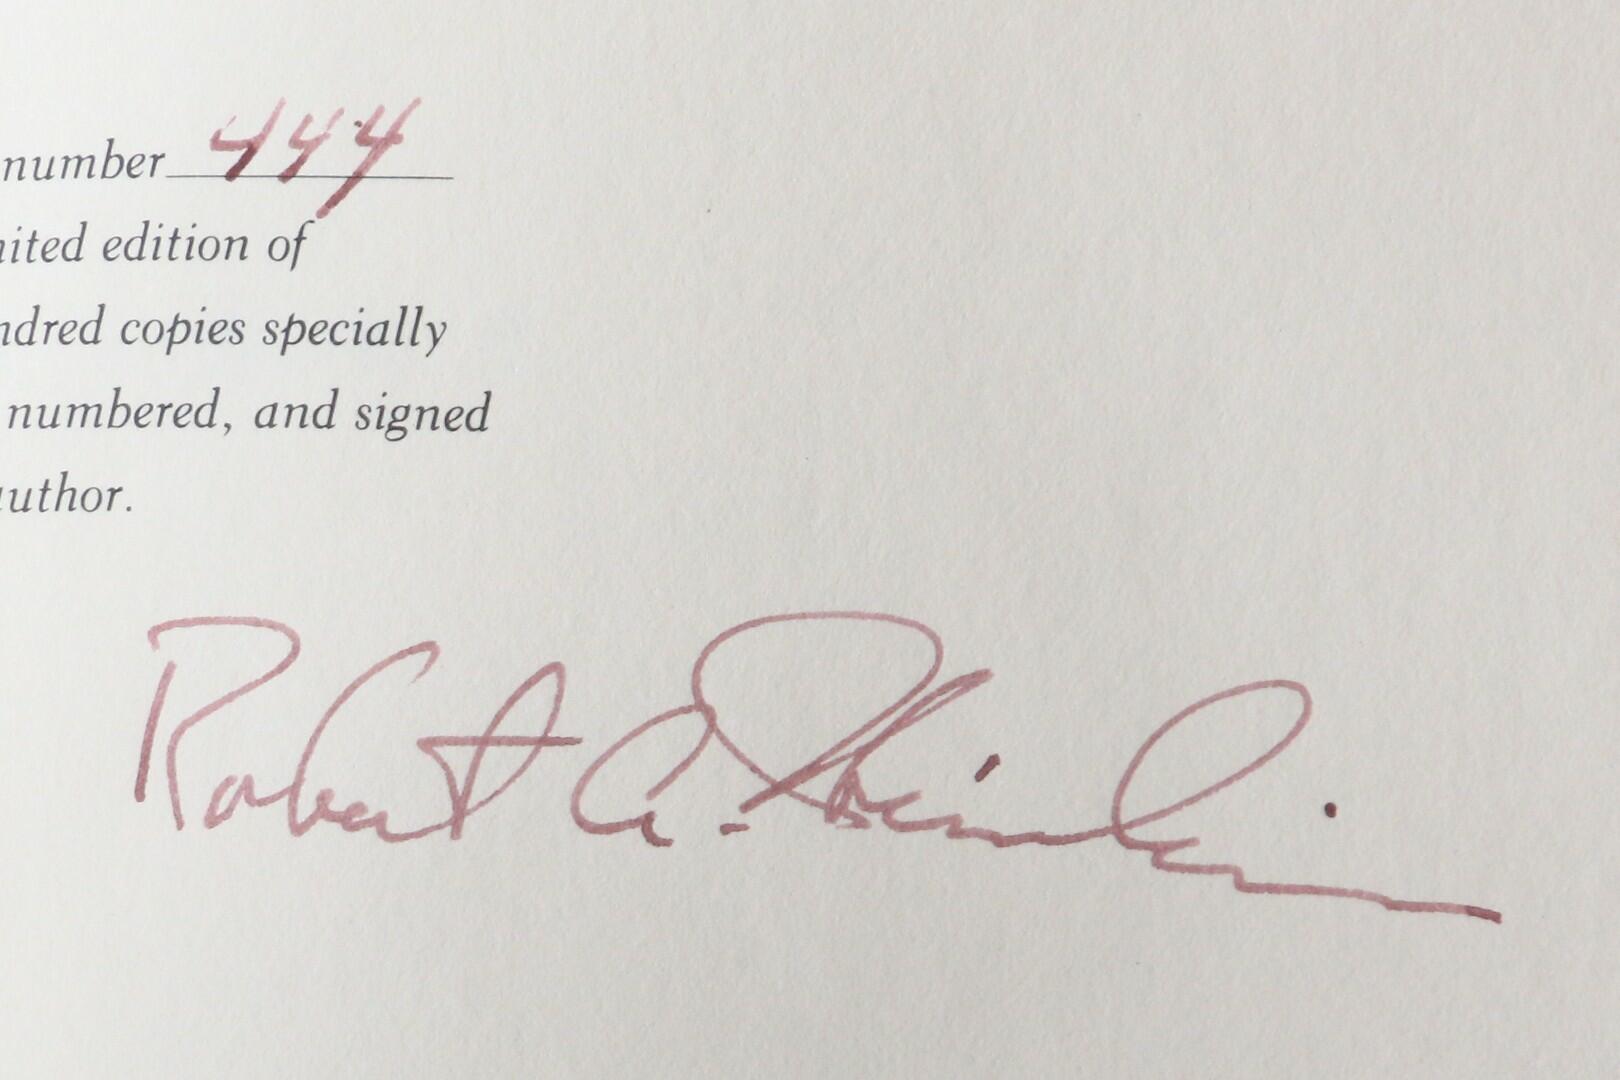 number 444
ited edition of
ndred copies specially
numbered, and signed
uthor.
Robert A. Heinlein